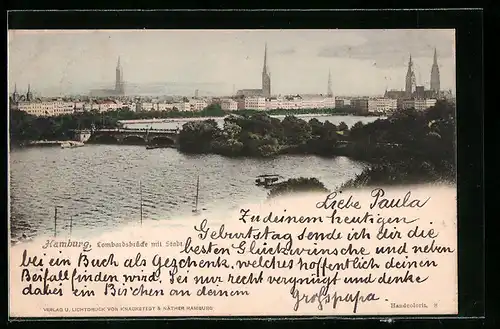 Liebe Paula
Zu deinem heutigen
Hamburg. Lombardsbrücke mit Stadt. Geburtstag sende ich dir die
besten Glückwünsche und neben
bei ein Buch als Geschenk, welches hoffentlich deinen
Beifall finden wird. Sei nur recht vergnügt und denke
dabei ein Bis'chen an deinem Grosspapa.
VERLAG U. LICHTDRUCK VON KNACKSTEDT & NÄTHER HAMBURG
Handcolorit. 8